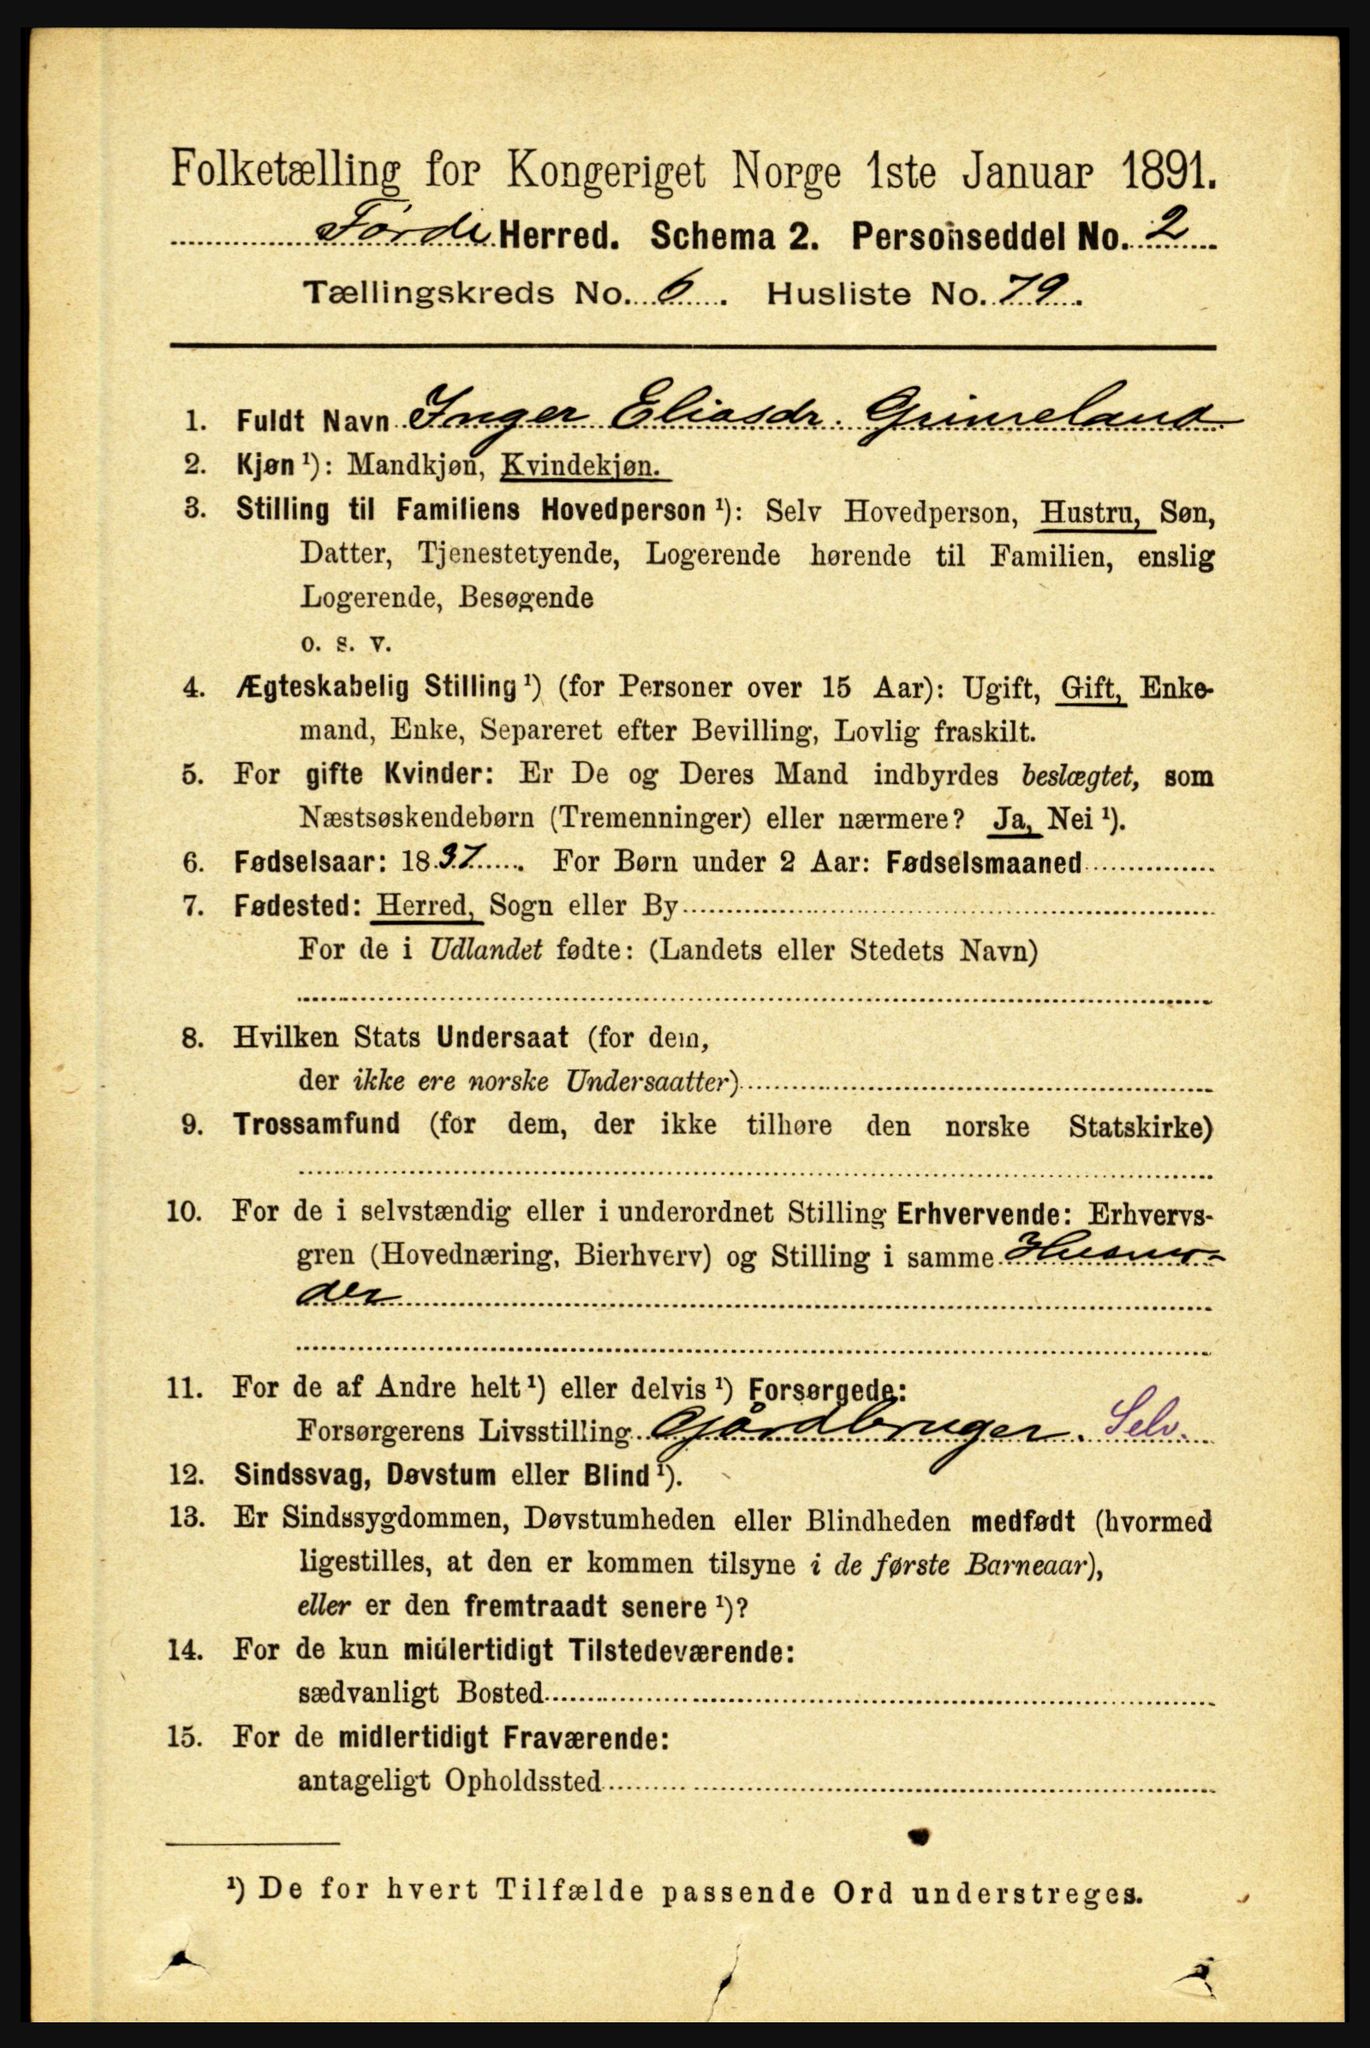 Folketælling for Kongeriget Norge 1ste Januar 1891.
Førde Herred. Schema 2. Personseddel No. 2
Tællingskreds No. 6. Husliste No. 79.
1. Fuldt Navn Inger Eliasdr. Grimeland
2. Kjøn ¹): Mandkjøn, Kvindekjøn.
3. Stilling til Familiens Hovedperson ¹): Selv Hovedperson, Hustru, Søn,
Datter, Tjenestetyende, Logerende hørende til Familien, enslig
Logerende, Besøgende
o. s. v.
4. Ægteskabelig Stilling ¹) (for Personer over 15 Aar): Ugift, Gift, Enke-
mand, Enke, Separeret efter Bevilling, Lovlig fraskilt.
5. For gifte Kvinder: Er De og Deres Mand indbyrdes beslægtet, som
Næstsøskendebørn (Tremenninger) eller nærmere? Ja, Nei ¹).
6. Fødselsaar: 1837. For Børn under 2 Aar: Fødselsmaaned
7. Fødested: Herred, Sogn eller By
For de i Udlandet fødte: (Landets eller Stedets Navn)
8. Hvilken Stats Undersaat (for dem,
der ikke ere norske Undersaatter)
9. Trossamfund (for dem, der ikke tilhøre den norske Statskirke)
10. For de i selvstændig eller i underordnet Stilling Erhvervende: Erhvervs-
gren (Hovednæring, Bierhverv) og Stilling i samme Husmo-
der
11. For de af Andre helt ¹) eller delvis ¹) Forsørgede:
Forsørgerens Livsstilling Gårdbruger. Selv.
12. Sindssvag, Døvstum eller Blind ¹).
13. Er Sindssygdommen, Døvstumheden eller Blindheden medfødt (hvormed
ligestilles, at den er kommen tilsyne i de første Barneaar),
eller er den fremtraadt senere ¹)?
14. For de kun midlertidigt Tilstedeværende:
sædvanligt Bosted
15. For de midlertidigt Fraværende:
antageligt Opholdssted
¹) De for hvert Tilfælde passende Ord understreges.